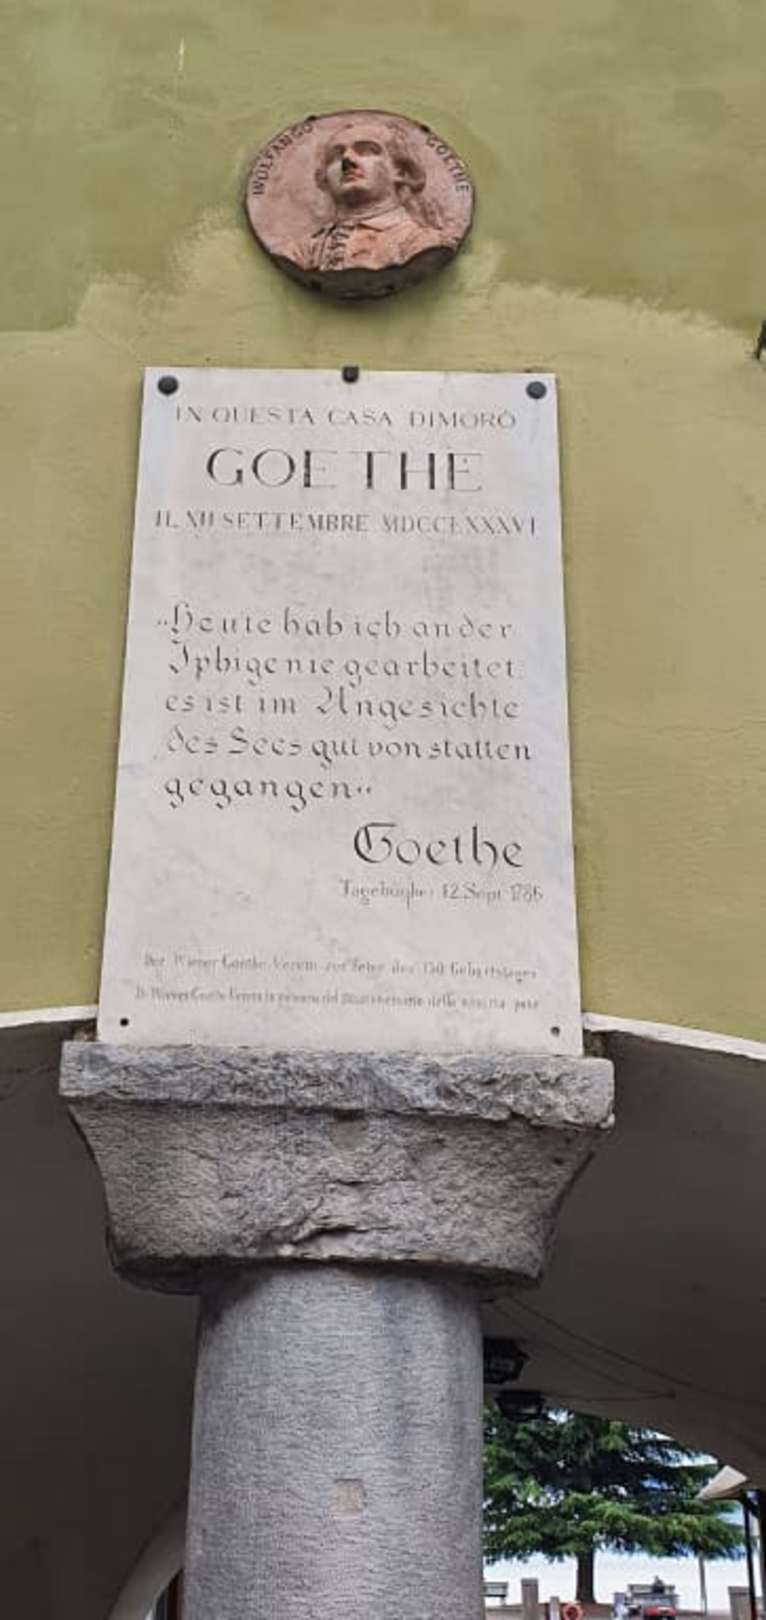 WOLFANGO GOETHE
IN QUESTA CASA DIMORÒ
GOETHE
IL XII SETTEMBRE MDCCLXXXVI
„Heute hab ich an der
Iphigenie gearbeitet
es ist im Angesichte
des Sees gut von statten
gegangen“
Goethe
12. Sept. 1786
Der Wiener Goethe Verein zur Feier des Geburtstages
Il Wiener Goethe Verein